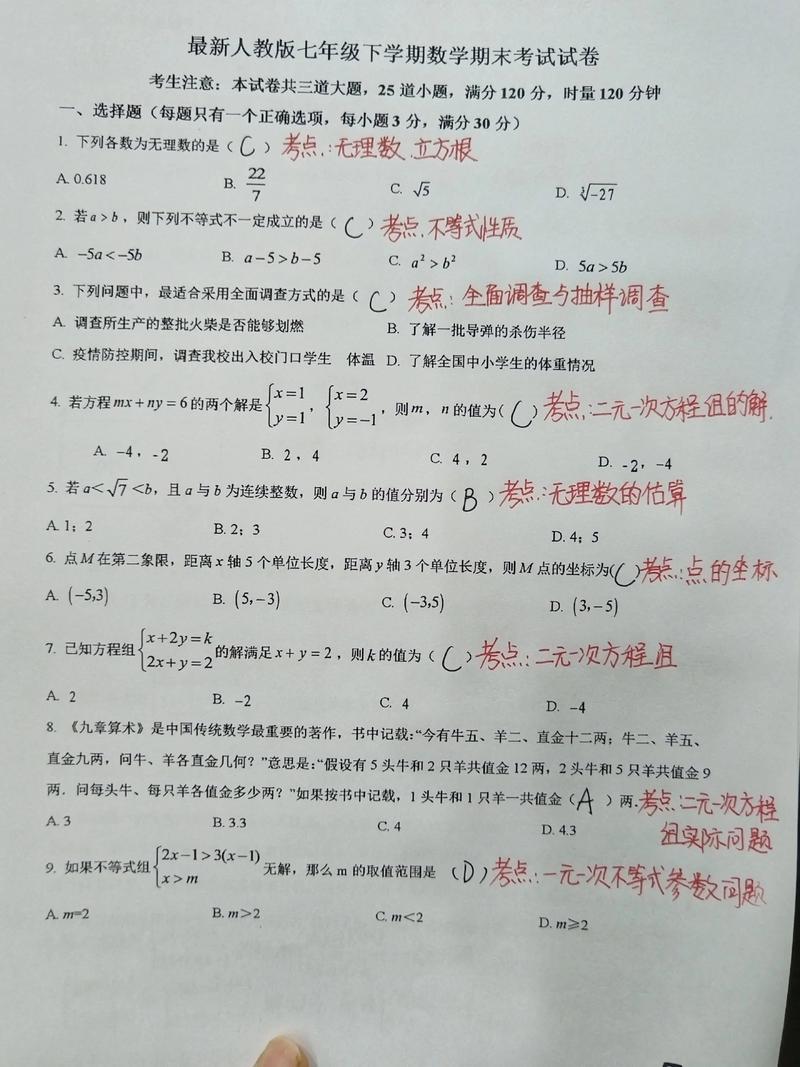 最新人教版七年级下学期数学期末考试试卷
考生注意：本试卷共三道大题，25 道小题，满分 120 分，时量 120 分钟
一、选择题（每题只有一个正确选项，每小题 3 分，满分 30 分）
1. 下列各数为无理数的是（ C ）考点：无理数、立方根
A. 0.618 B. 22/7 C. √5 D. ∛-27
2. 若 a > b ，则下列不等式不一定成立的是（ C ）考点：不等式性质
A. -5a < -5b B. a-5 > b-5 C. a² > b² D. 5a > 5b
3. 下列问题中，最适合采用全面调查方式的是（ C ）考点：全面调查与抽样调查
A. 调查所生产的整批火柴是否能够划燃 B. 了解一批导弹的杀伤半径
C. 疫情防控期间，调查我校出入校门口学生 体温 D. 了解全国中小学生的体重情况
4. 若方程 mx + ny = 6 的两个解是 {x=1 y=1 ， {x=2 y=-1 ，则 m，n 的值为( C )考点：二元一次方程组的解.
A. -4，-2 B. 2，4 C. 4，2 D. -2，-4
5. 若 a＜√7＜b，且 a 与 b 为连续整数，则 a 与 b 的值分别为（ B ）考点：无理数的估算
A. 1；2 B. 2；3 C. 3；4 D. 4；5
6. 点 M 在第二象限，距离 x 轴 5 个单位长度，距离 y 轴 3 个单位长度，则 M 点的坐标为( C )考点：点的坐标
A. (-5,3) B. (5,-3) C. (-3,5) D. (3,-5)
7. 已知方程组 {x+2y=k 2x+y=2 的解满足 x + y = 2 ，则 k 的值为（ C ）考点：二元一次方程组
A. 2 B. -2 C. 4 D. -4
8. 《九章算术》是中国传统数学最重要的著作，书中记载：“今有牛五、羊二、直金十二两；牛二、羊五、
直金九两，问牛、羊各直金几何？”意思是：“假设有 5 头牛和 2 只羊共值金 12 两，2 头牛和 5 只羊共值金 9
两．问每头牛、每只羊各值金多少两？”如果按书中记载，1 头牛和 1 只羊一共值金（ A ）两.考点：二元一次方程
组实际问题
A. 3 B. 3.3 C. 4 D. 4.3
9. 如果不等式组 {2x-1>3(x-1) x>m 无解，那么 m 的取值范围是 （D）考点：一元一次不等式参数问题
A. m=2 B. m＞2 C. m＜2 D. m≥2